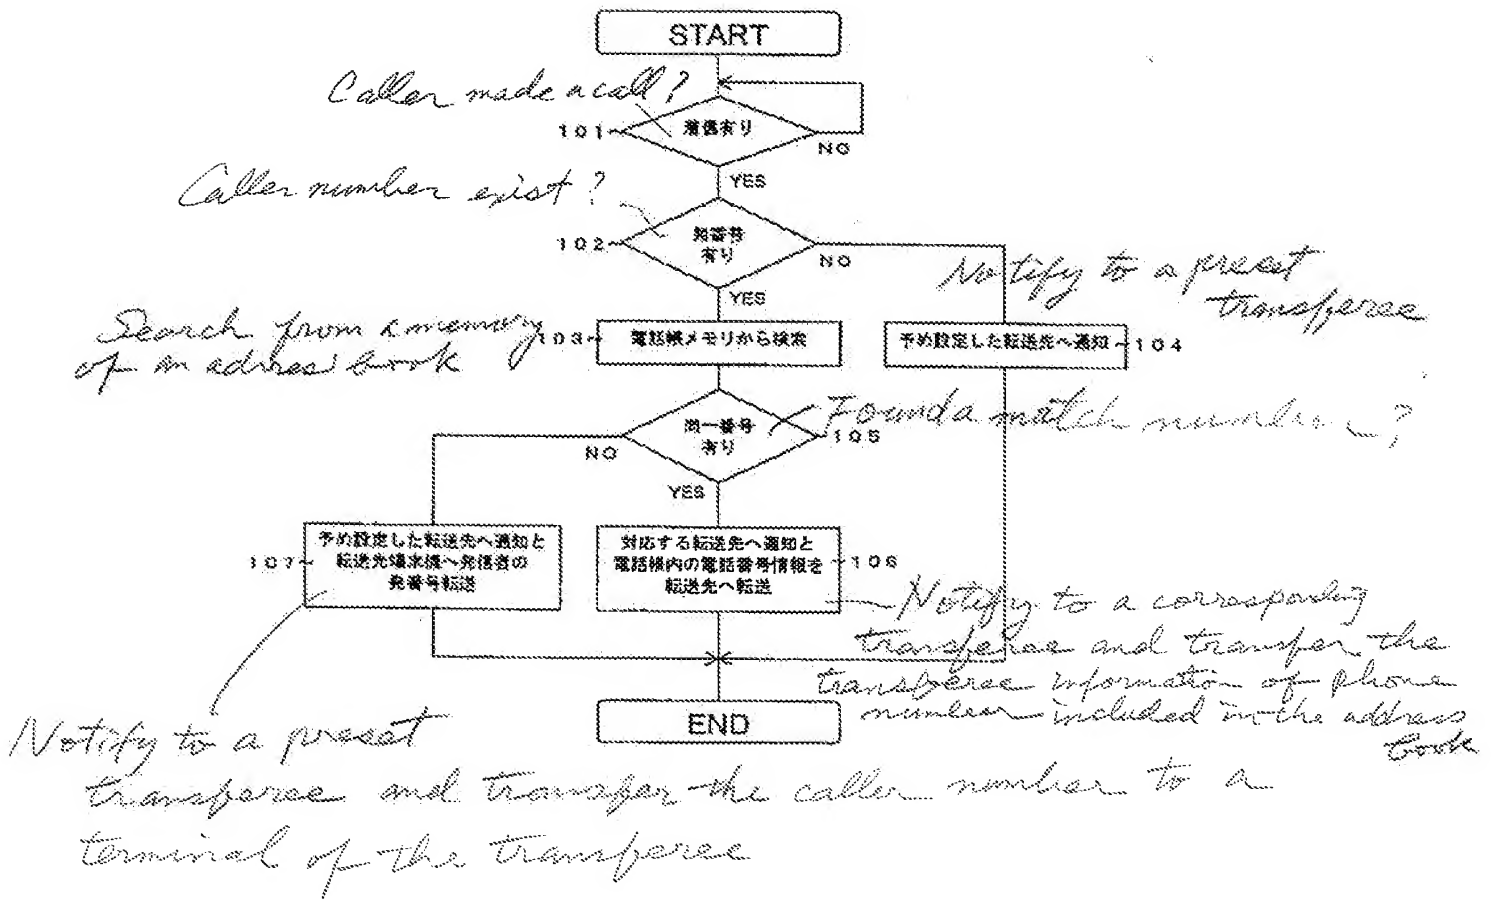 START
Caller made a call?
101
着信有り
NO
YES
Caller number exist?
102
発番号
有り
NO
YES
Notify to a preset
transferee
Search from a memory
of an adress book
103
電話帳メモリから検索
予め設定した転送先へ通知
104
同一番号
有り
105
Found a match number?
NO
YES
107
予め設定した転送先へ通知と
転送先端末機へ発信者の
発番号転送
対応する転送先へ通知と
電話帳内の電話番号情報を
転送先へ転送
106
Notify to a corresponding
transferee and transfer the
transferee information of phone
number included in the address
book
END
Notify to a preset
transferee and transfer the caller number to a
terminal of the transferee